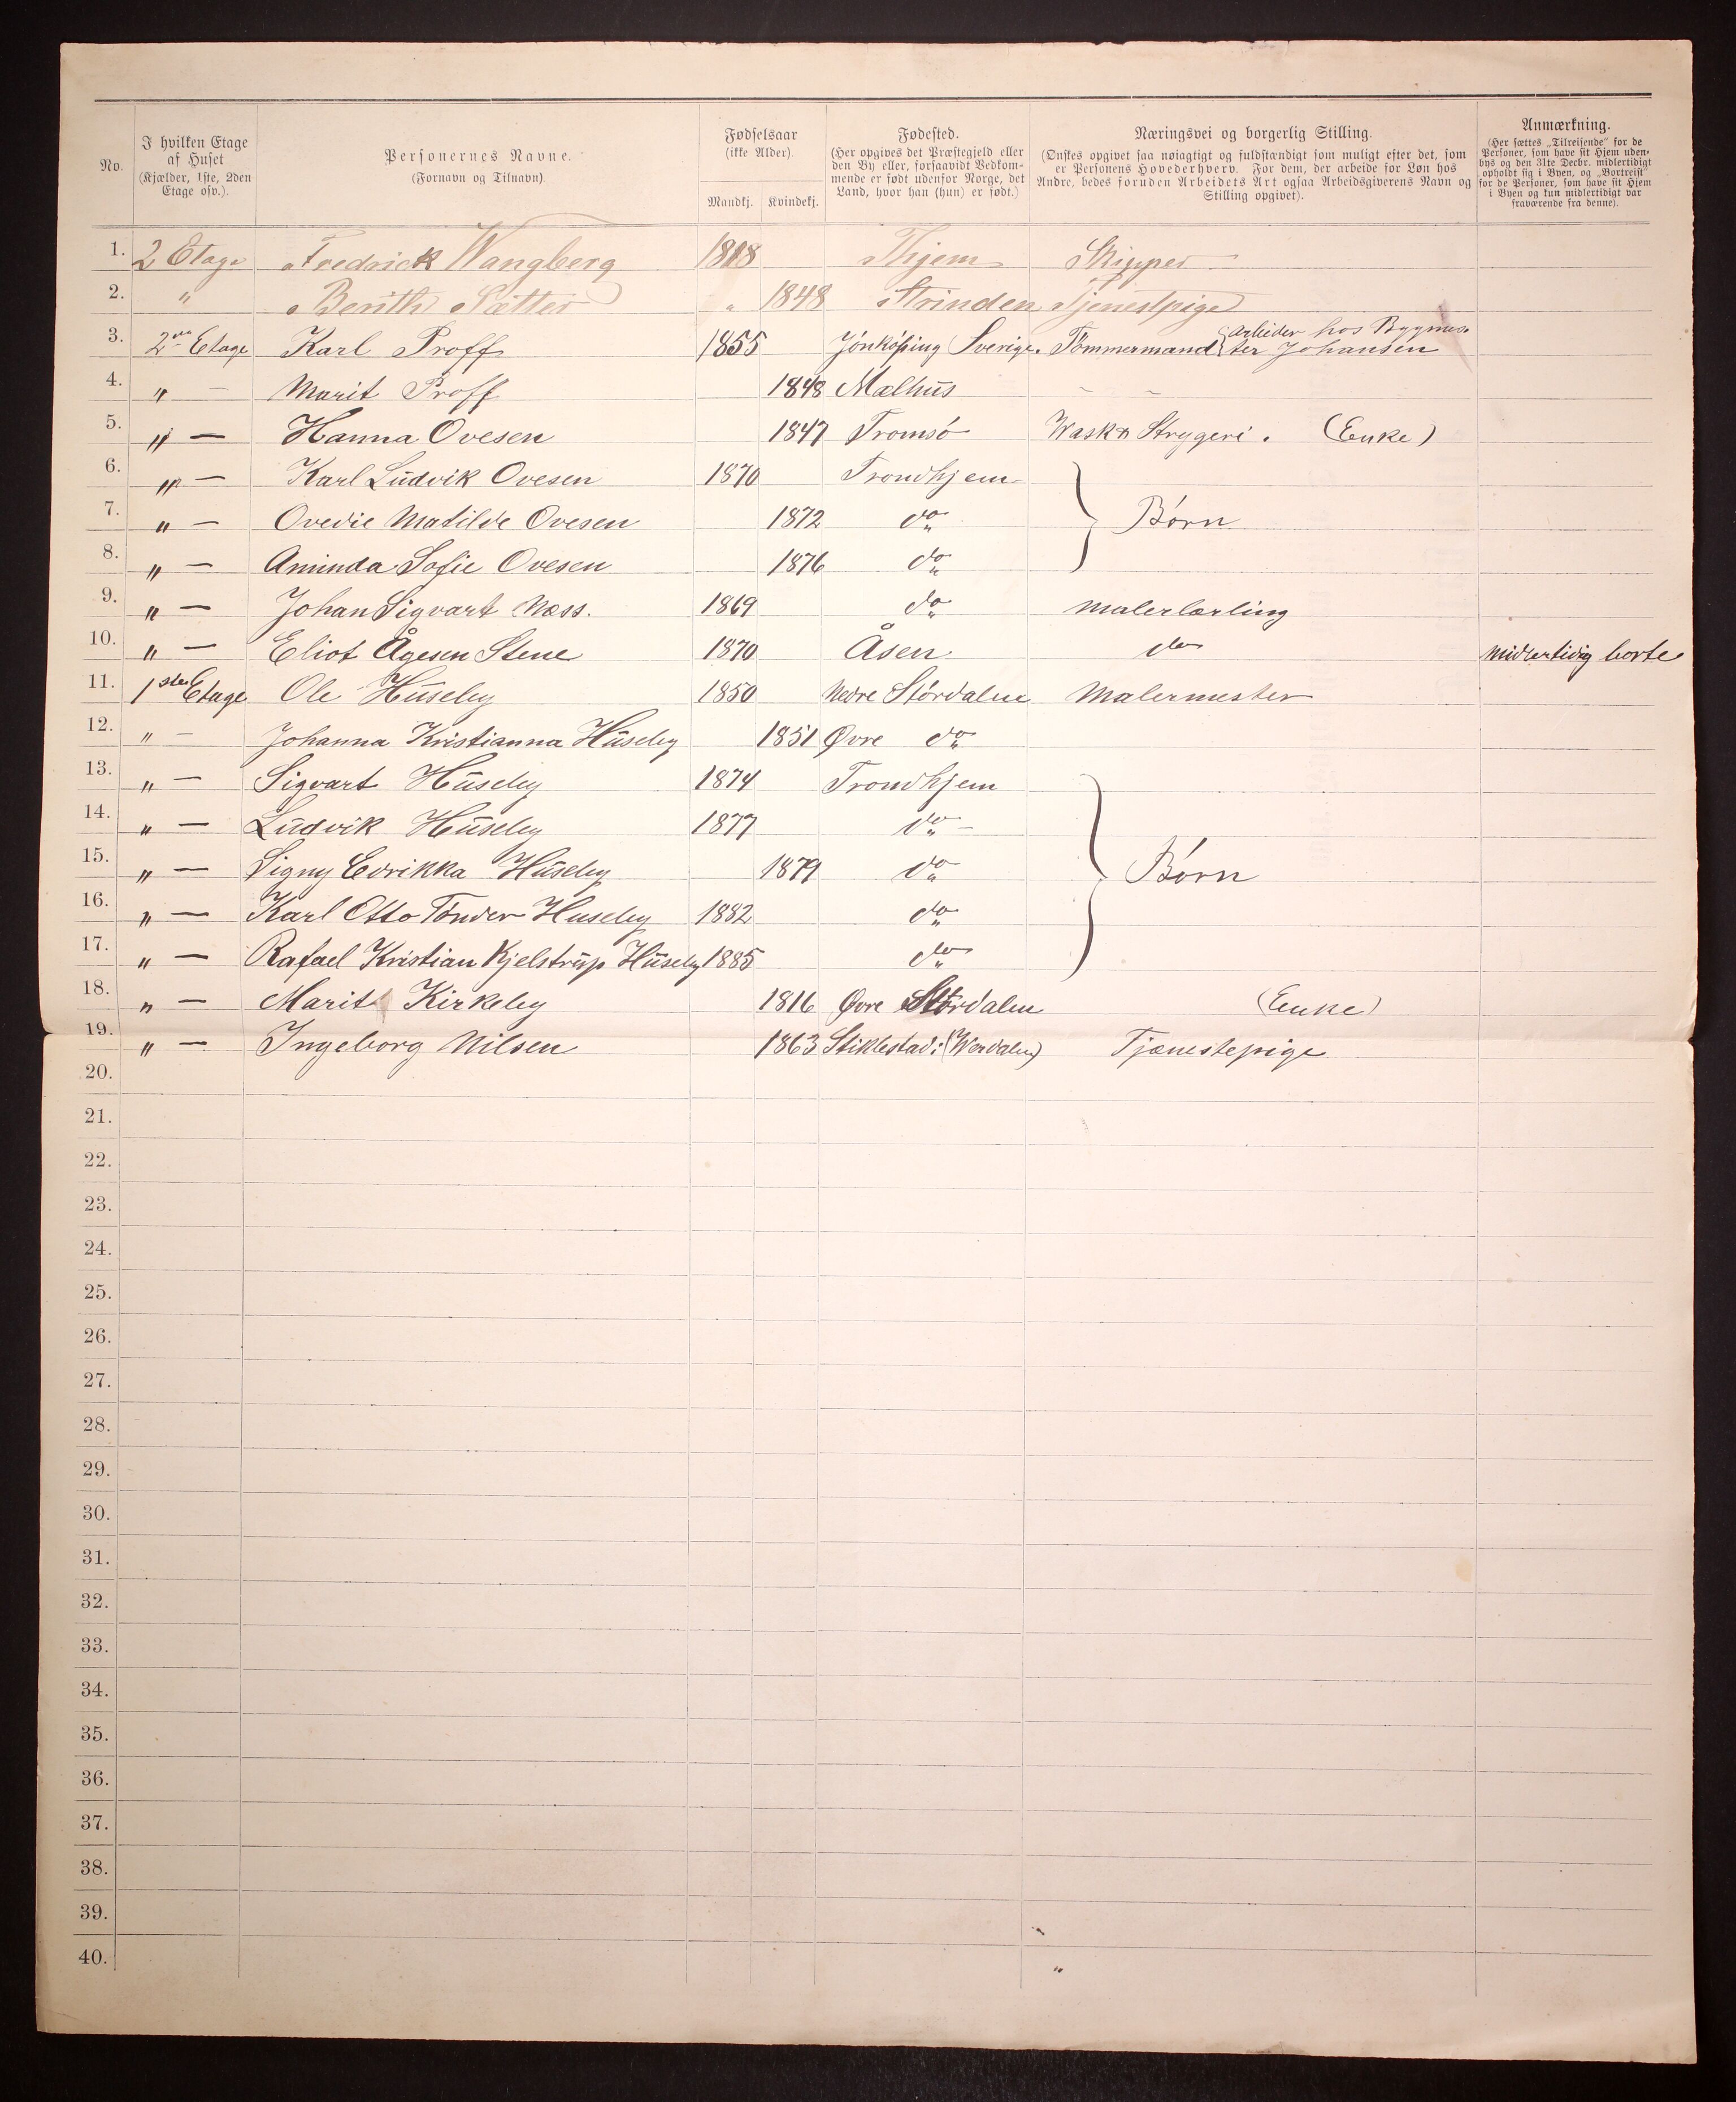 No.
I hvilken Etage
af Huset
(Kjælder, 1ste, 2den
Etage osv.).
Personernes Navne.
(Fornavn og Tilnavn).
Fødselsaar
(ikke Alder).
Mandkj. Kvindekj.
Fødested.
(Her opgives det Præstegjeld eller
den By eller, forsaavidt Vedkom-
mende er født udenfor Norge, det
Land, hvor han (hun) er født.)
Næringsvei og borgerlig Stilling.
(Ønskes opgivet saa nøiagtigt og fuldstændigt som muligt efter det, som
er Personens Hovederhverv. For dem, der arbeide for Løn hos
Andre, bedes foruden Arbeidets Art ogsaa Arbeidsgiverens Navn og
Stilling opgivet).
Anmærkning.
(Her sættes „Tilreisende" for de
Personer, som have sit Hjem uden-
bys og den 31te Decbr. midlertidigt
opholdt sig i Byen, og „Bortreist"
for de Personer, som have sit Hjem
i Byen og kun midlertidigt var
fraværende fra denne).
1. 2 Etage Fredrick Wangberg 1818 Thjem Skipper
2. " Berith Sætter " 1848 Strinden Tjenestpige
3. 2den Etage Karl Proff 1855 Jönköping Sverige. Tömmermand arbeider hos Bygmes
ter Johansen
4. " — Marit Proff 1848 Mælhus - -
5. " — Hanna Ovesen 1847 Tromsö Wask & Strygeri. (Enke)
6. " — Karl Ludvik Ovesen 1870 Trondhjem
7. " — Ovedie Matilde Ovesen 1872 do Børn
8. " — Aminda Sofie Ovesen 1876 do
9. " — Johan Sigvart Næss. 1869 do Malerlærling
10. " — Eliot Ågesen Stene 1870 Åsen do Midlertidig borte
11. 1ste Etage Ole Huseby 1850 Nedre Stördalen Malermester
12. " — Johanna Kristianna Huseby 1851 Øvre do
13. " — Sigvart Huseby 1874 Trondhjem
14. " — Ludvik Huseby 1877 do —
15. " — Signy Edrikka Huseby 1879 do Børn
16. " — Karl Otto Tönder Huseby 1882 do
17. " — Rafael Kristian Kjelstrup Huseby 1885 do
18. " — Marit Kirkeby 1816 Øvre Stördalen (Enke)
19. " — Ingeborg Nilsen 1863 Stiklestad: (Werdalen) Tjænestepige
20.
21.
22.
23.
24.
25.
26.
27.
28.
29.
30.
31.
32.
33.
34.
35.
36.
37.
38.
39.
40.